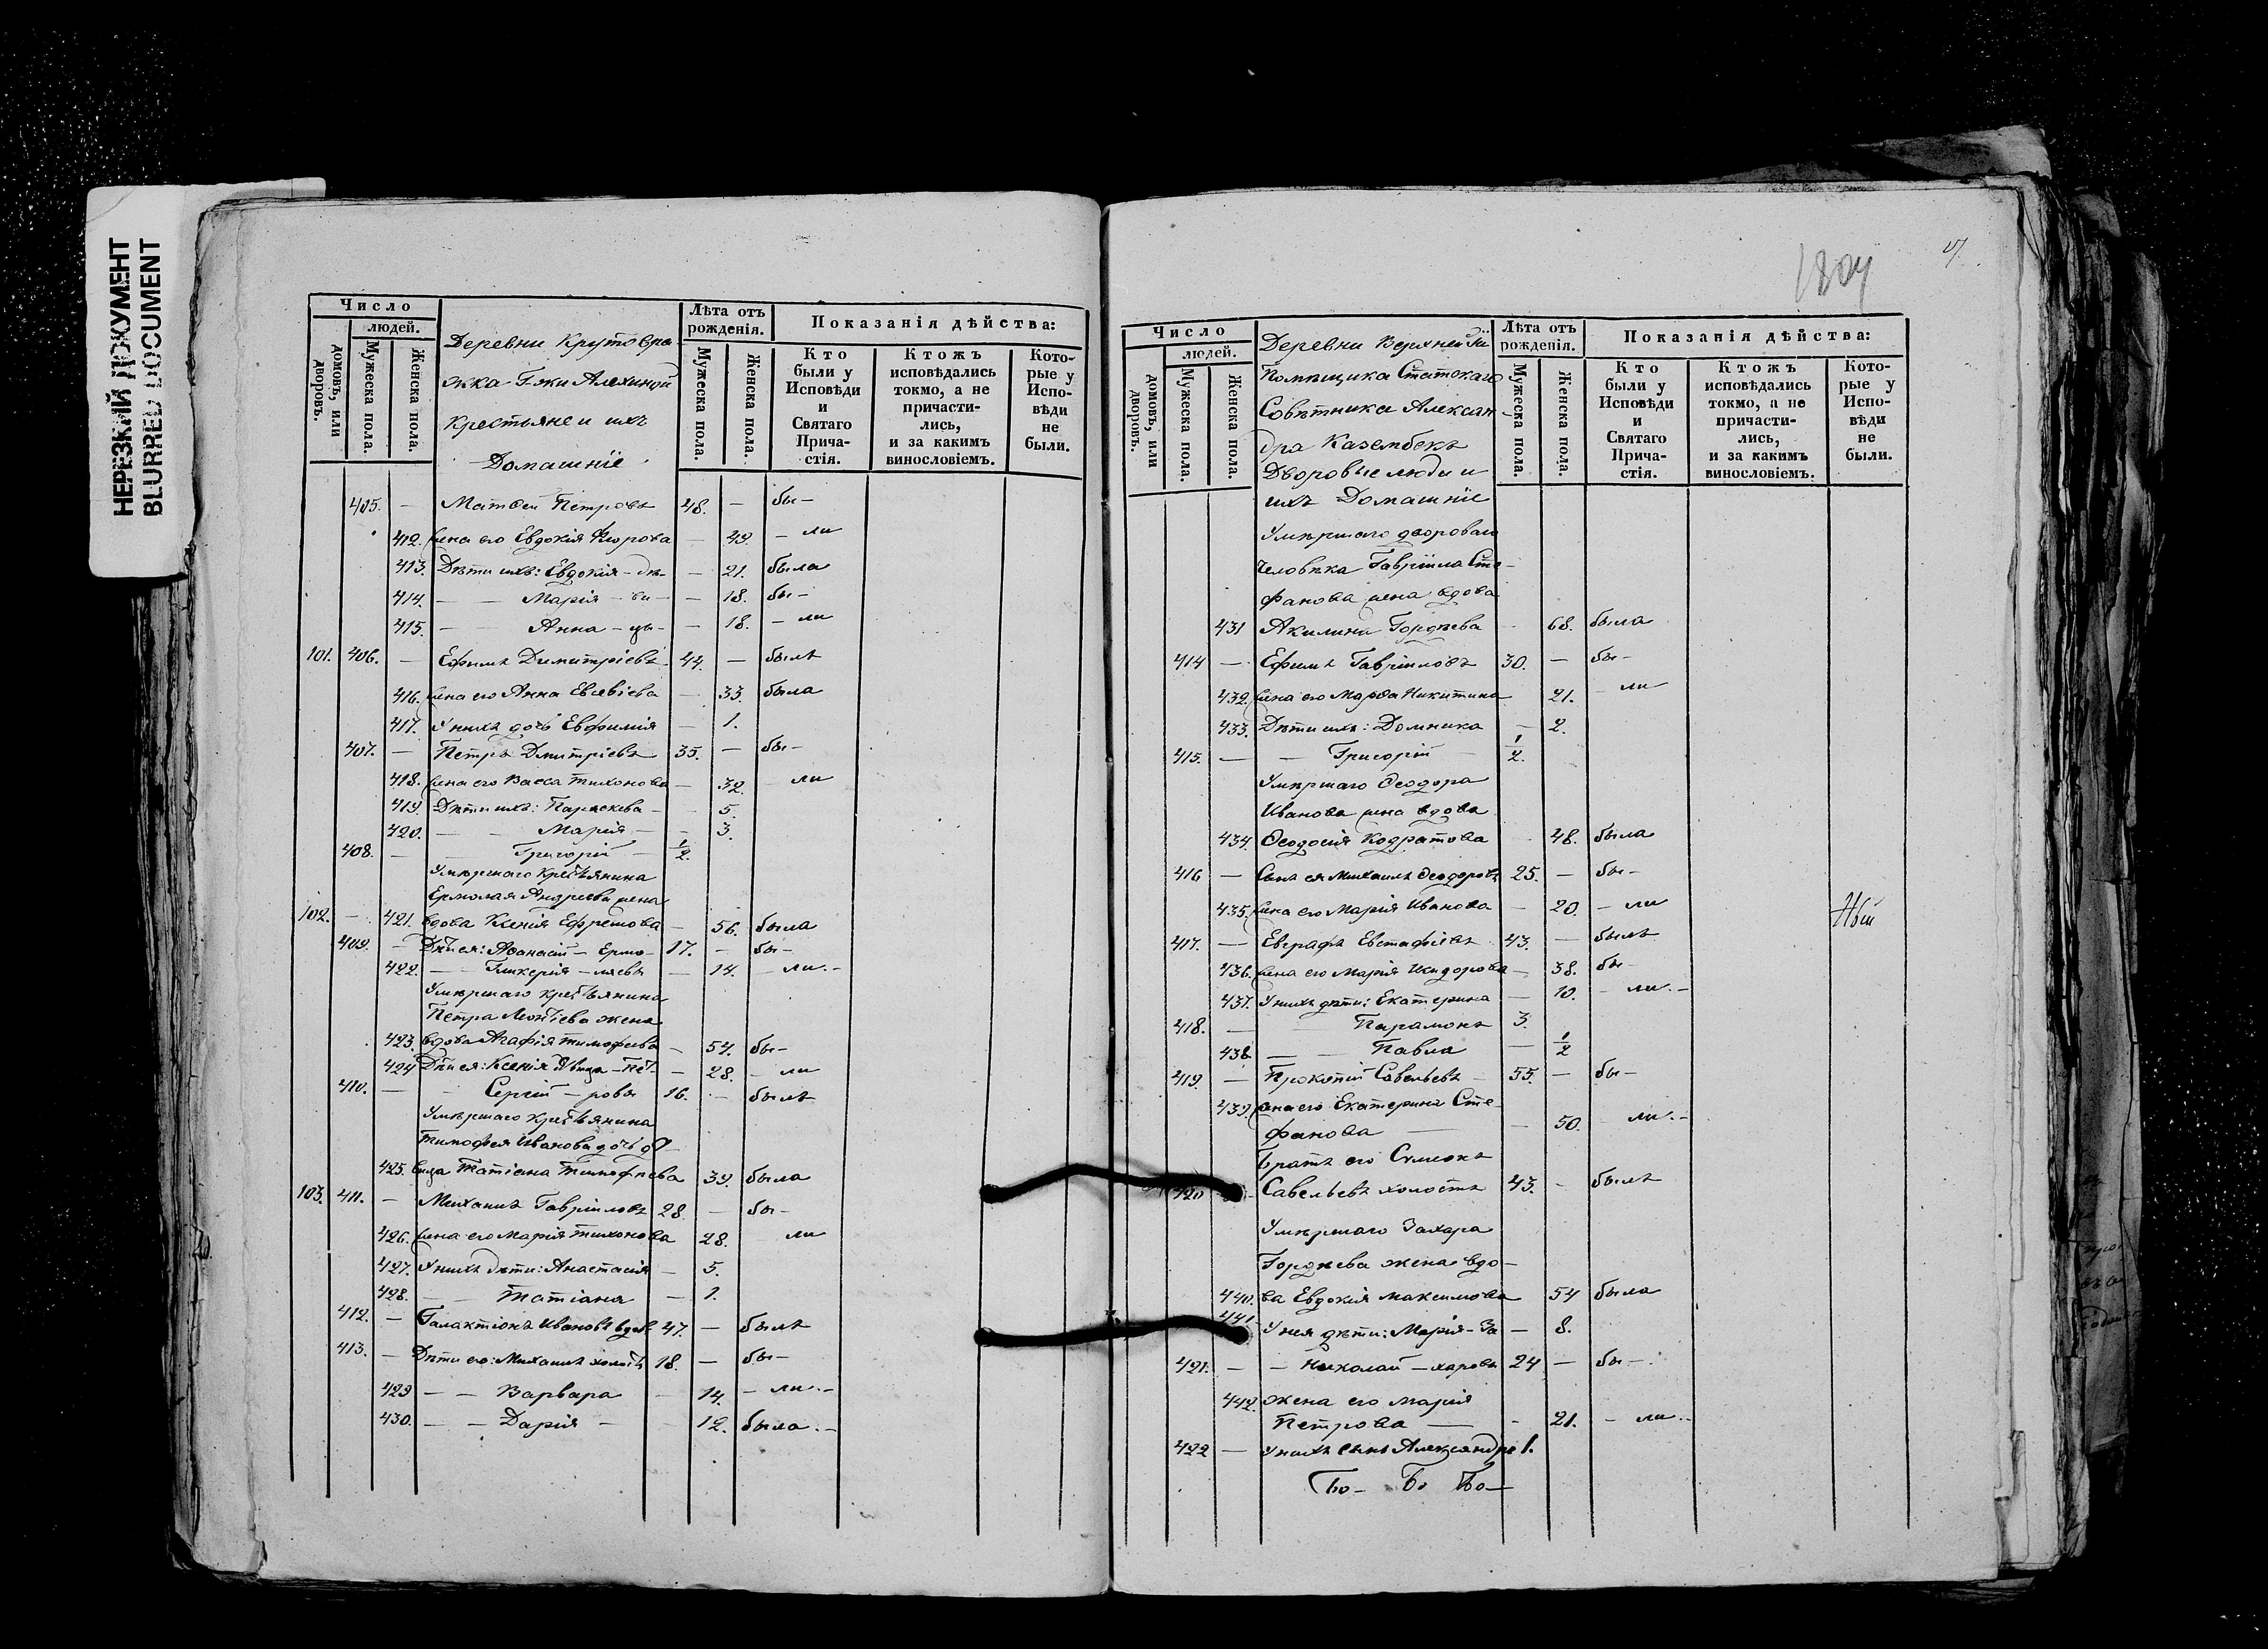 НЕРЕЗКИЙ ДОКУМЕНТ
BLURRED DOCUMENT
Число
людей.
домовъ, или дворовъ.
Мужеска пола.
Женска пола.
Деревни Крутовра-
жка Г-жи Алехиной
Крестьяне и ихъ
Домашніе
Лѣта отъ рожденія.
Мужеска пола.
Женска пола.
Показанія дѣйства:
Кто были у Исповѣди и Святаго Прича-стія.
Ктожъ исповѣдались токмо, а не причасти-лись, и за какимъ винословіемъ.
Кото-рые у Испо-вѣди не были.
405. — Матѳей Петровъ 48. — бы-
412. Жена его Евдокія — 49. - ли
413. Дѣти ихъ: Евдокія - дѣ- — 21. была
414. — — Марія - ви- — 18. бы-
415. — — Анна - цы- — 18. - ли
101. 406. — Ефимъ Димитріевъ 44. — былъ
416. Жена его Анна Евсевіева — 33. была
417. У нихъ дочь Евфимія — 1.
407. — Петръ Дмитріевъ 35. — бы-
418. Жена его Васса Тихонова — 32. - ли
419. Дѣти ихъ: Параскева — 5.
420. — — Марія — 3.
408. — — Григорій — 1/2.
Умѣршаго крестьянина
Ермолая Андреева жена
102. — 421. вдова Ксенія Ефремова — 56. была
409. — Дѣти ея: Аѳанасій - Ермо- 17. — бы-
422. — — Гликерія - лаевы — 14. - ли. -
Умѣршаго крестьянина
Петра Леонтіева жена
423. вдова Агафія Тимофеева — 54. бы-
424 Дѣти ея: Ксенія дѣвица - Пет- — 28. - ли
410. — — Сергій - ровы 16. — былъ
Умѣршаго крестьянина
Тимофея Иванова дочь дѣ-
425. вица Татіана Тимофеева 39. была
103. 411. — Михаилъ Гавріиловъ 28. — бы-
426. Жена его Марія Тихонова 28. ли
427. У нихъ дѣти: Анастасія — 5.
428. — — Татіана — 1.
412. — Галактіонъ Ивановъ вдовъ 47. — былъ
413. — Дѣти его: Михаилъ холостъ 18. — бы-
429 — — Варвара — 14. - ли. -
430. — — Дарія — 12. была. -
1804
Число
людей.
домовъ, или дворовъ.
Мужеска пола.
Женска пола.
Деревни Верхней
Помѣщика Статскаго
Совѣтника Алексан-
дра Казембекъ
Дворовые люди и
ихъ Домашніе
Лѣта отъ рожденія.
Мужеска пола.
Женска пола.
Показанія дѣйства:
Кто были у Исповѣди и Святаго Прича-стія.
Ктожъ исповѣдались токмо, а не причасти-лись, и за какимъ винословіемъ.
Кото-рые у Испо-вѣди не были.
Умѣршаго двороваго
человѣка Гавріила Сте-
фанова жена вдова
431 Акилина Гордѣева 68. была
414 — Ефимъ Гавріиловъ 30. — бы-
432. Жена его Марѳа Никитина 21. - ли
433. Дѣти ихъ: Домника — 2.
415. — — Григорій — 1/2.
Умѣршаго Ѳеодора
Иванова жена вдова
434. Ѳеодосія Кодратова 48. была
416 — Сынъ ея Михаилъ Ѳеодоровъ 25. — бы-
435. Жена его Марія Иванова — 20. - ли
417. — Евграфъ Евстафіевъ 43. — былъ
436. Жена его Марія Исидорова — 38. бы-
437. У нихъ дѣти: Екатерина — 10. - ли. -
418. — Парамонъ 3.
438 — — Павла — 1/2
419. — Прокопій Савельевъ 55. — бы-
439. Жена его Екатерина Сте-
фанова — — 50. - ли. -
Братъ его Симеонъ
420 — Савельевъ холостъ 43. — былъ
Умѣршаго Захара
Гордѣева жена вдо-
440. ва Евдокія Максимова 54 была
441 У нея дѣти: Марія - За — 8.
421. — — Николай - харовы 24 — бы-
442. Жена его Марія
Петрова — - 21. - ли. -
422 — У нихъ сынъ Александръ 1.